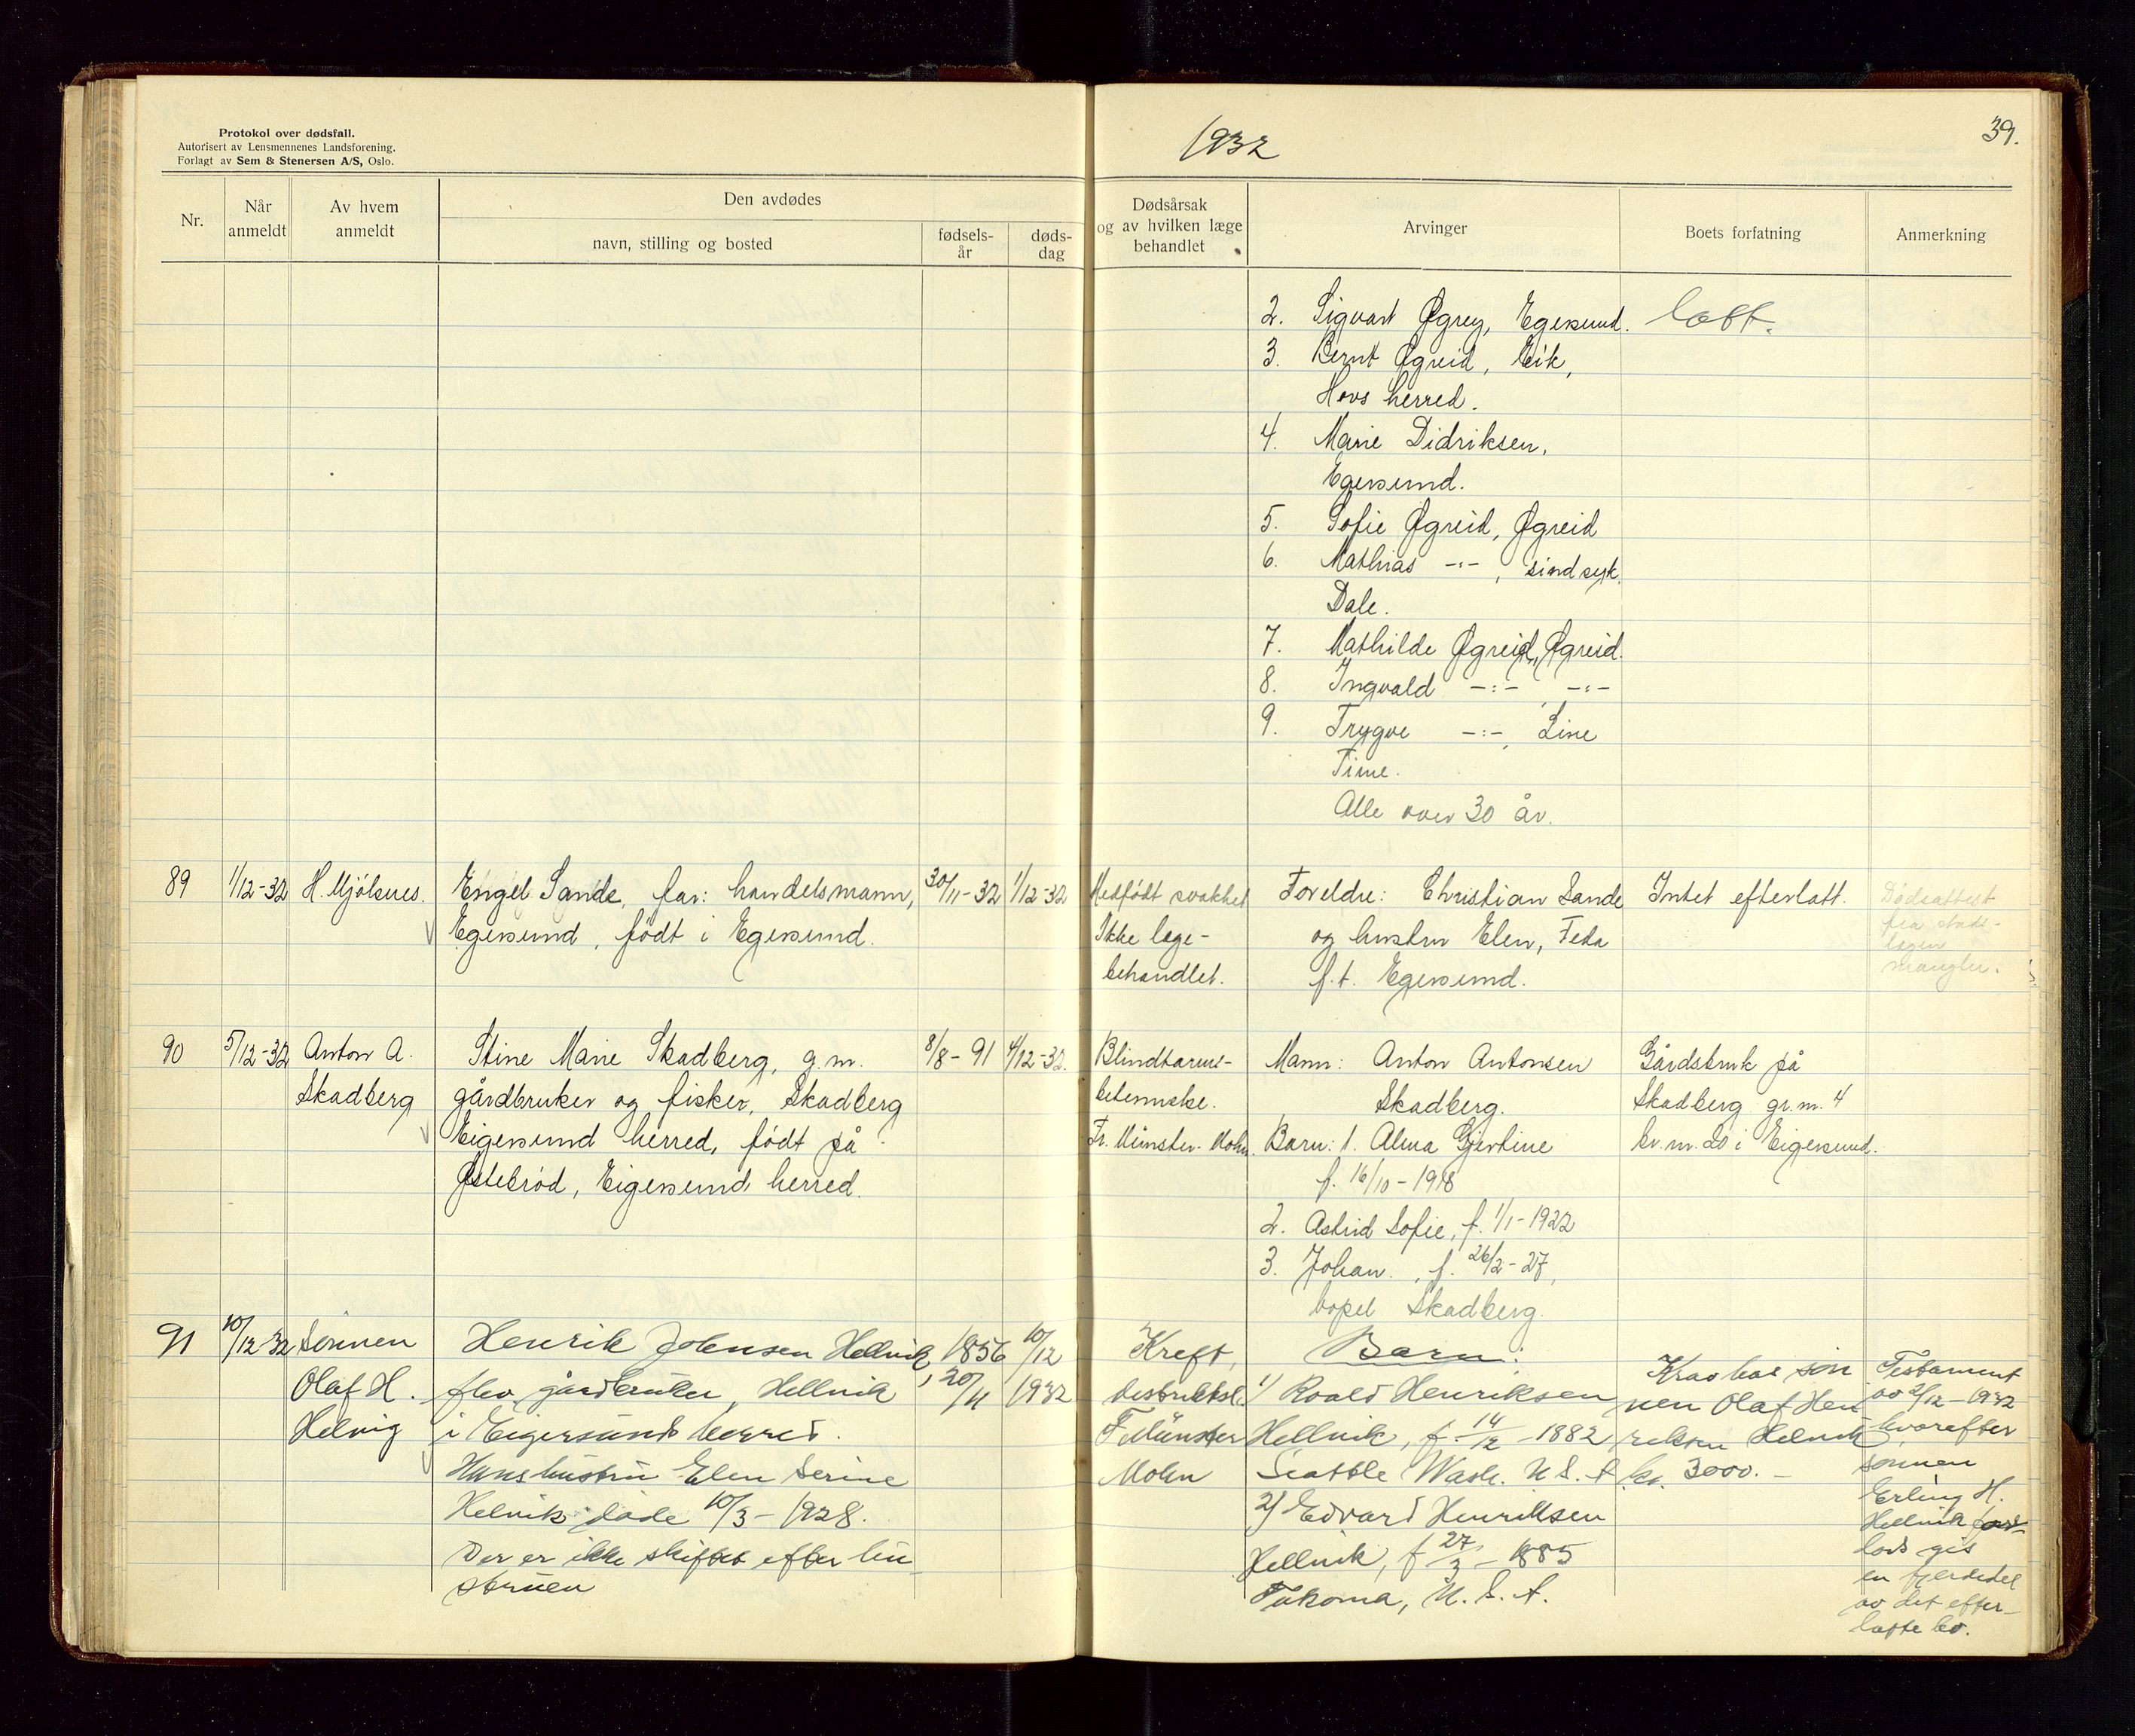 Protokol over dødsfall.
Autorisert av Lensmennenes Landsforening.
Forlagt av Sem & Stenersen A/S, Oslo.
1932
39.
Nr.
Når anmeldt
Av hvem anmeldt
Den avdødes
navn, stilling og bosted
fødsels-år
døds-dag
Dødsårsak og av hvilken læge behandlet
Arvinger
Boets forfatning
Anmerkning
2. Sigvart Øgrey, Egersund. latt.
3. Bernt Øgreid, Eik,
Hovs herred.
4. Marie Didriksen,
Egersund.
5. Sofie Øgreid, Øgreid
6. Mathias -:-, sindsyk.
Dale.
7. Mathilde Øgreid, Øgreid.
8. Ingvald -:- -:-
9. Trygve -:-, Line
Time.
Alle over 30 år.
89 1/12-32 H. Mjölsnes. Engel Sande, far: handelsmann, 30/11-32 1/12-32
Egersund, født i Egersund.
Medfödt svakhet
Ikke læge-
behandlet.
Foreldre: Christian Sande
og hustru Elen, Feda
f.t. Egersund.
Intet efterlatt.
Dødsattest
fra stads-
lægen
mangler.
90 5/12-32 Anton A. Stine Marie Skadberg, g.m. 8/8-91 4/12-32.
Skadberg gårdbruker og fisker, Skadberg
Eigersund herred, født på
Østebröd, Eigersund herred.
Blindtarms-
betennelse.
Fr. Münster-Mohn.
Mann: Anton Antonsen
Skadberg.
Barn: 1. Alma Gjertine
f. 16/10-1918
2. Astrid Sofie, f. 1/1-1922
3. Johan, f. 26/2-27,
bopel Skadberg.
Gårdsbruk på
Skadberg gr.nr. 4
br.nr. 20 i Eigersund.
91 10/12 32 Sönnen Henrik Johnsen Hellvik, 1856 10/12
Olaf H. flev. gårdbruker, Hellvik 20/11 1932
Helvig i Eigersund herred.
Hans hustru Elen Serine
Helvik döde 10/3-1928.
Der er ikke skiftet efter hu-
struen
Kreft,
distriktsl.
F Münster
Mohn
Barn:
1) Roald Henriksen
Hellvik, f. 14/12-1882
Seattle Wash. U.S.A
2) Edvard Henriksen
Hellvik, f 27/3-1885
Takoma, U.S.A.
Krav hos søn
nen Olaf Hen
riksen Helvik
kr. 3000.-
Testament
av 2/12-1932
hvorefter
sönnen
Erling H.
Hellvik for-
lods gis
en fjerdedel
av det efter-
latte bo.